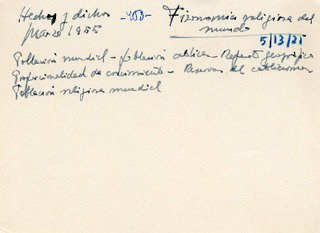 Hechos y dichos
Marzo 1955
-400-
Fisonomía religiosa del
mundo
5/13/25
Población mundial - población católica - Reparto geográfico
Proporcionalidad de crecimiento - Reservas del catolicismo
Población religiosa mundial